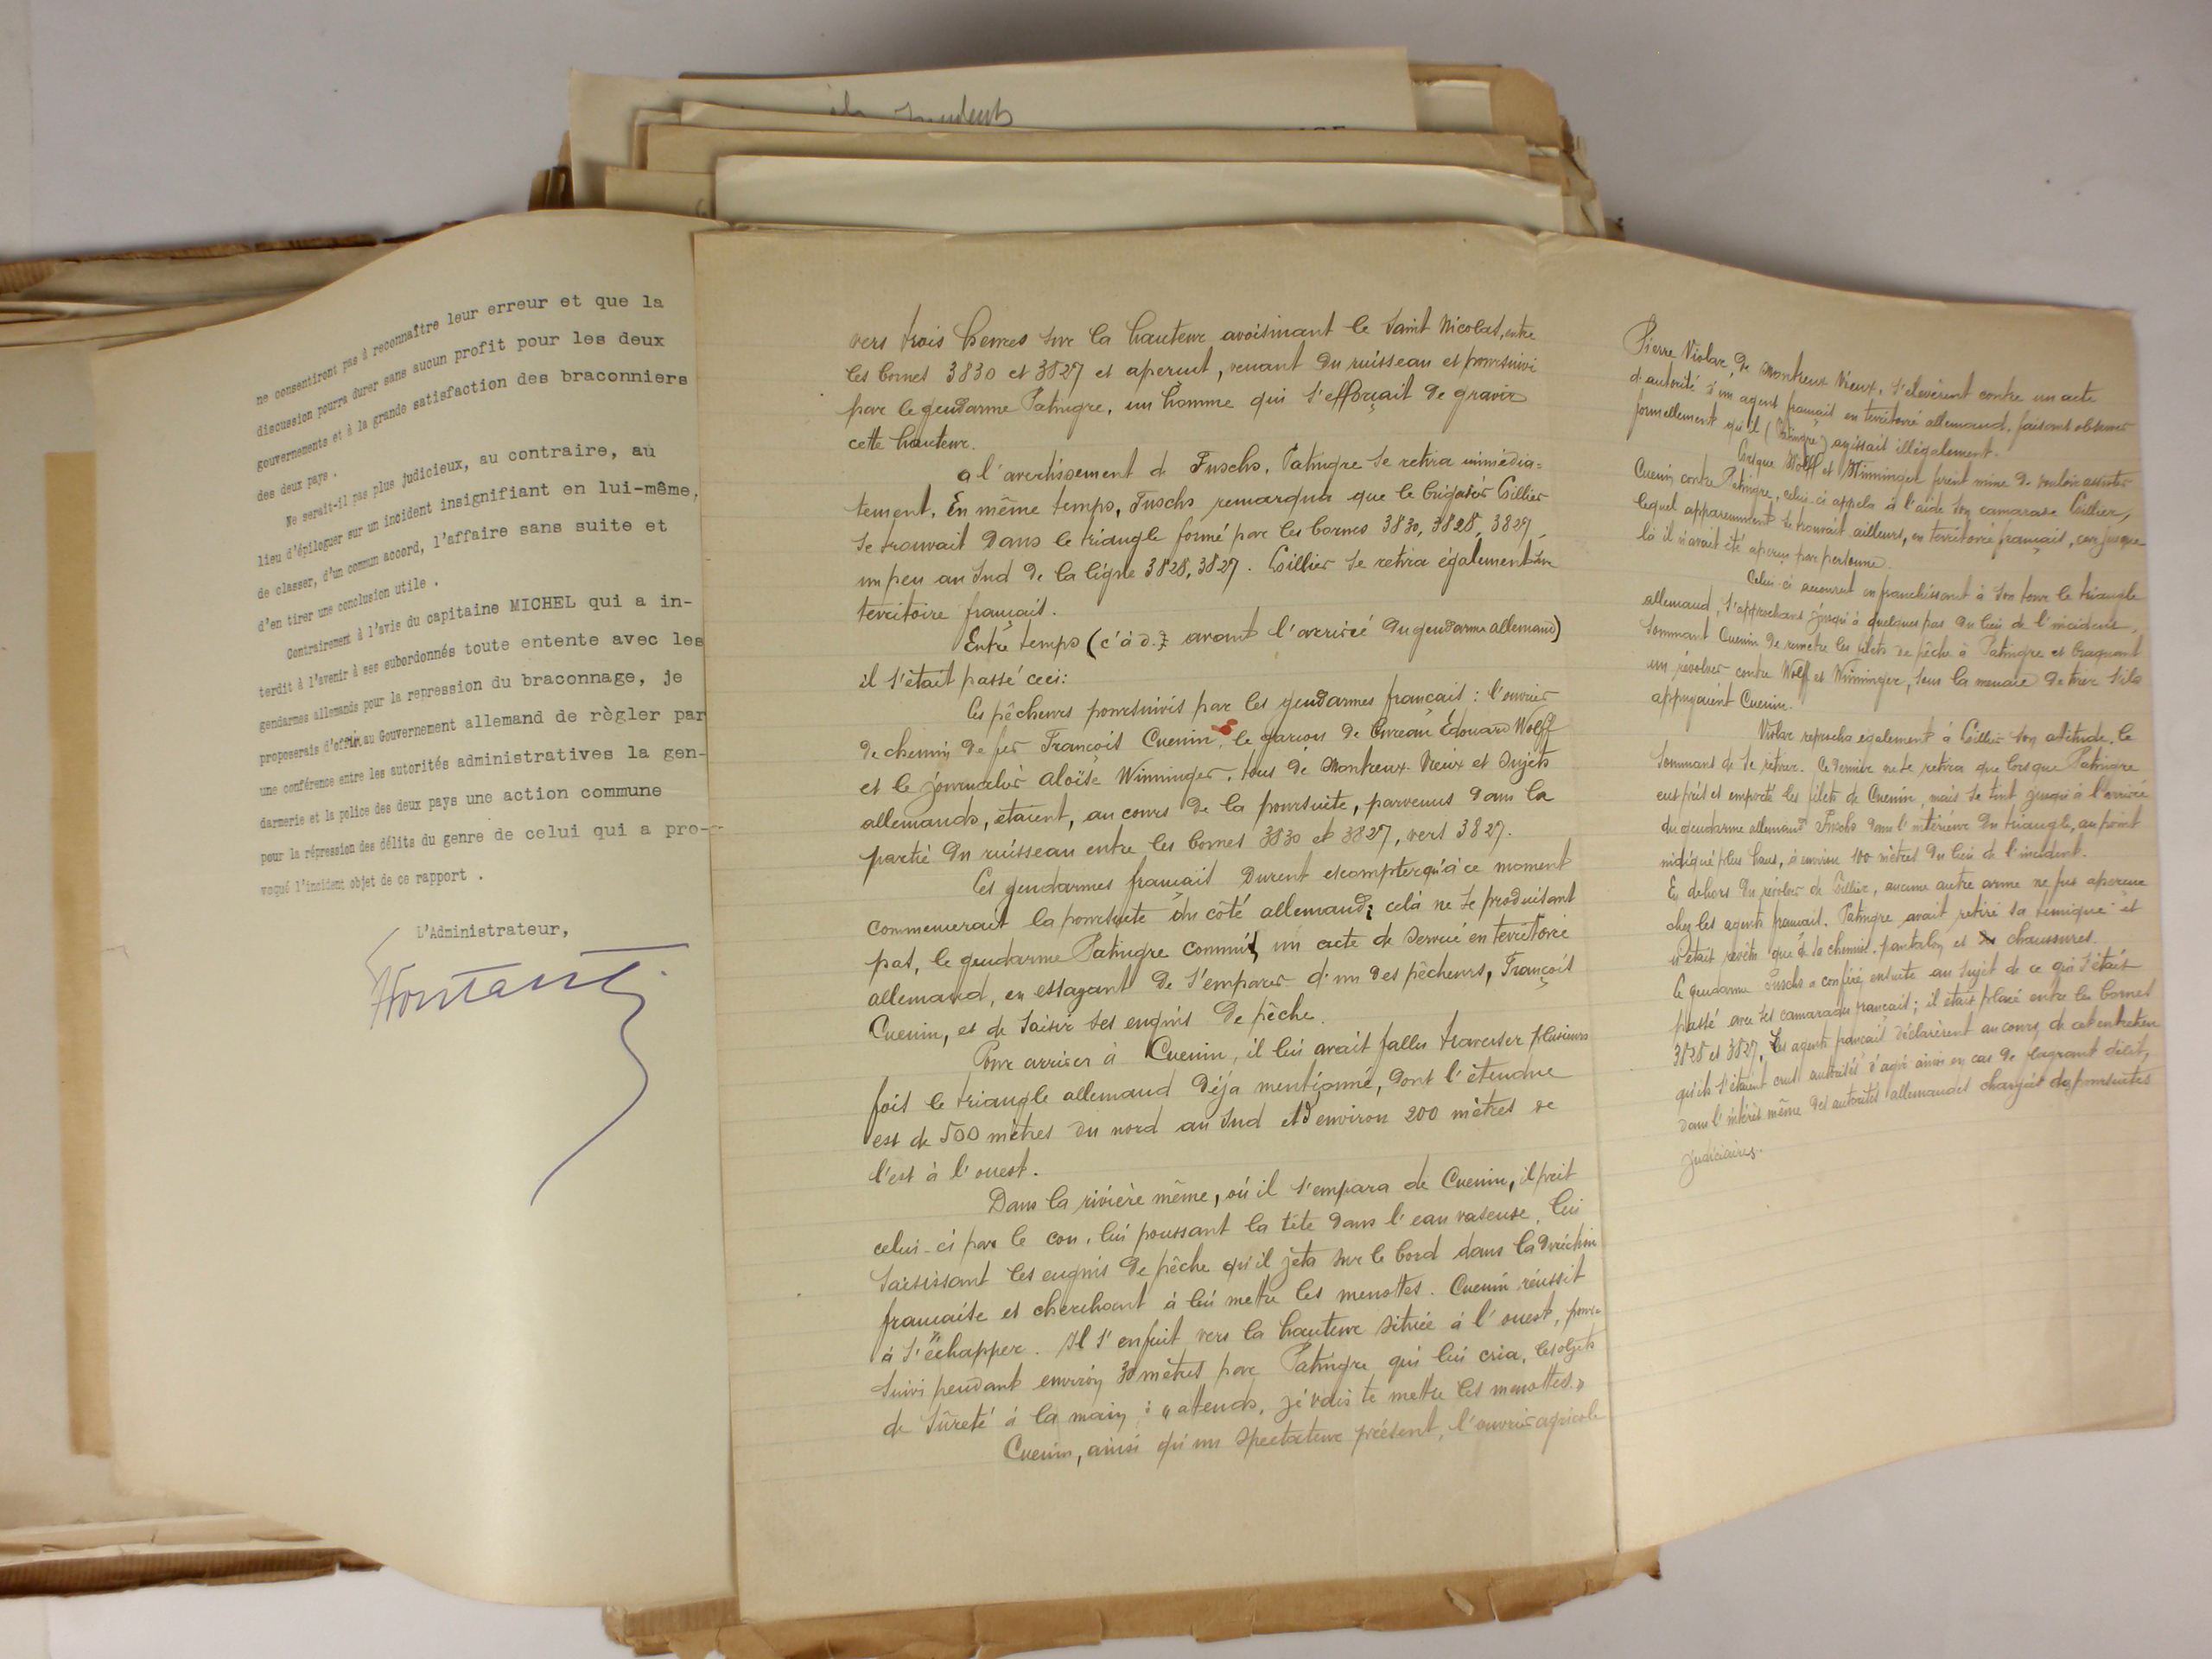 ne consentiront pas à reconnaître leur erreur et que la
discussion pourra durer sans aucun profit pour les deux
gouvernements et à la grande satisfaction des braconniers
des deux pays .
Ne serait-il pas plus judicieux, au contraire, au
lieu d'épiloguer sur un incident insignifiant en lui-même,
de classer, d'un commun accord, l'affaire sans suite et
d'en tirer une conclusion utile .
Contrairement à l'avis du capitaine MICHEL qui a in-
terdit à l'avenir à ses subordonnés toute entente avec les
gendarmes allemands pour la repression du braconnage, je
proposerais d'offrir au Gouvernement allemand de règler par
une conférence entre les autorités administratives la gen-
darmerie et la police des deux pays une action commune
pour la répression des délits du genre de celui qui a pro-
voqué l'incident objet de ce rapport .
L'Administrateur,
vers trois heures sur la hauteur avoisinant le Saint Nicolas, entre
les bornes 3830 et 3827 et aperçut, venant du ruisseau et poursuivi
par le gendarme Patingre, un homme qui s'efforçait de gravir
cette hauteur.
a l'avertissement de Fuschs, Patingre se retira immédia=
tement. En même temps, Fuschs remarqua que le brigadier Cillier
se trouvait dans le triangle formé par les bornes 3830, 3828, 3827,
un peu au Sud de la ligne 3828, 3827. Cillier se retira également sur
territoire français.
Entre temps (c'à d. : avant l'arrivée du gendarme allemand)
il s'était passé ceci:
Les pêcheurs poursuivis par les gendarmes français : l'ouvrier
de chemin de fer François Cuenin, le garçon de bureau Edouard Wolff
et le journalier Aloïse Winninger, tous de Montreux-Vieux et sujets
allemands, étaient, au cours de la poursuite, parvenus dans la
partie du ruisseau entre les bornes 3830 et 3827, vers 3827.
Les gendarmes français durent escompter qu'à ce moment
commencerait la poursuite du côté allemand; celà ne se produisant
pas, le gendarme Patingre commit un acte de service en territoire
allemand, en essayant de s'emparer d'un des pêcheurs, François
Cuenin, et de saisir ses engins de pêche.
Pour arriver à Cuenin, il lui avait fallu traverser plusieurs
fois le triangle allemand déjà mentionné, dont l'étendue
est de 500 mètres du nord au sud et d'environ 200 mètres de
l'est à l'ouest.
Dans la rivière même, où il s'empara de Cuenin, il prit
celui-ci par le cou, lui poussant la tête dans l'eau vaseuse, lui
saisissant les engins de pêche qu'il jeta sur le bord dans la direction
française et cherchant à lui mettre les menottes. Cuenin réussit
à s'échapper. Il s'enfuit vers la hauteur située à l'ouest, pour=
suivi pendant environ 30 mètres par Patingre qui lui cria, les objets
de sûreté à la main : "attends, je vais te mettre les menottes."
Cuenin, ainsi qu'un spectateur présent, l'ouvrier agricole
Pierre Violar, de Montreux Vieux, s'élevèrent contre un acte
d'autorité d'un agent français en territoire allemand, faisant observer
formellement qu'il (Patingre) agissait illégalement.
Lorsque Wolff et Winninger firent mine de vouloir assister
Cuenin contre Patingre, celui-ci appela à l'aide son camarade Cillier,
lequel apparemment se trouvait ailleurs, en territoire français, car jusque
là il n'avait été aperçu par personne.
Celui-ci accourut en franchissant à son tour le triangle
allemand, s'approchant jusqu'à quelques pas du lieu de l'incident,
sommant Cuenin de remettre les filets de pêche à Patingre et braquant
un révolver contre Wolff et Winninger, sous la menace de tirer s'ils
appuyaient Cuenin.
Violar reprocha également à Cillier son attitude, le
sommant de se retirer. Ce dernier ne se retira que lorsque Patingre
eut pris et emporté les filets de Cuenin, mais se tint jusqu'à l'arrivée
du gendarme allemand Fuschs dans l'intérieur du triangle, au point
indiqué plus haut, à environ 100 mètres du lieu de l'incident.
En dehors du révolver de Cillier, aucune autre arme ne fut aperçue
chez les agents français. Patingre avait retiré sa tunique et
n'était revêtu que de sa chemise, pantalon et chaussures.
Le gendarme Fuschs a conféré ensuite au sujet de ce qui s'était
passé avec ses camarades français; il était placé entre les bornes
3828 et 3827. Les agents français déclarèrent au cours de cet entretien
qu'ils s'étaient crus autorisés d'agir ainsi en cas de flagrant délit,
dans l'intérêt même des autorités allemandes chargées des poursuites
judiciaires.